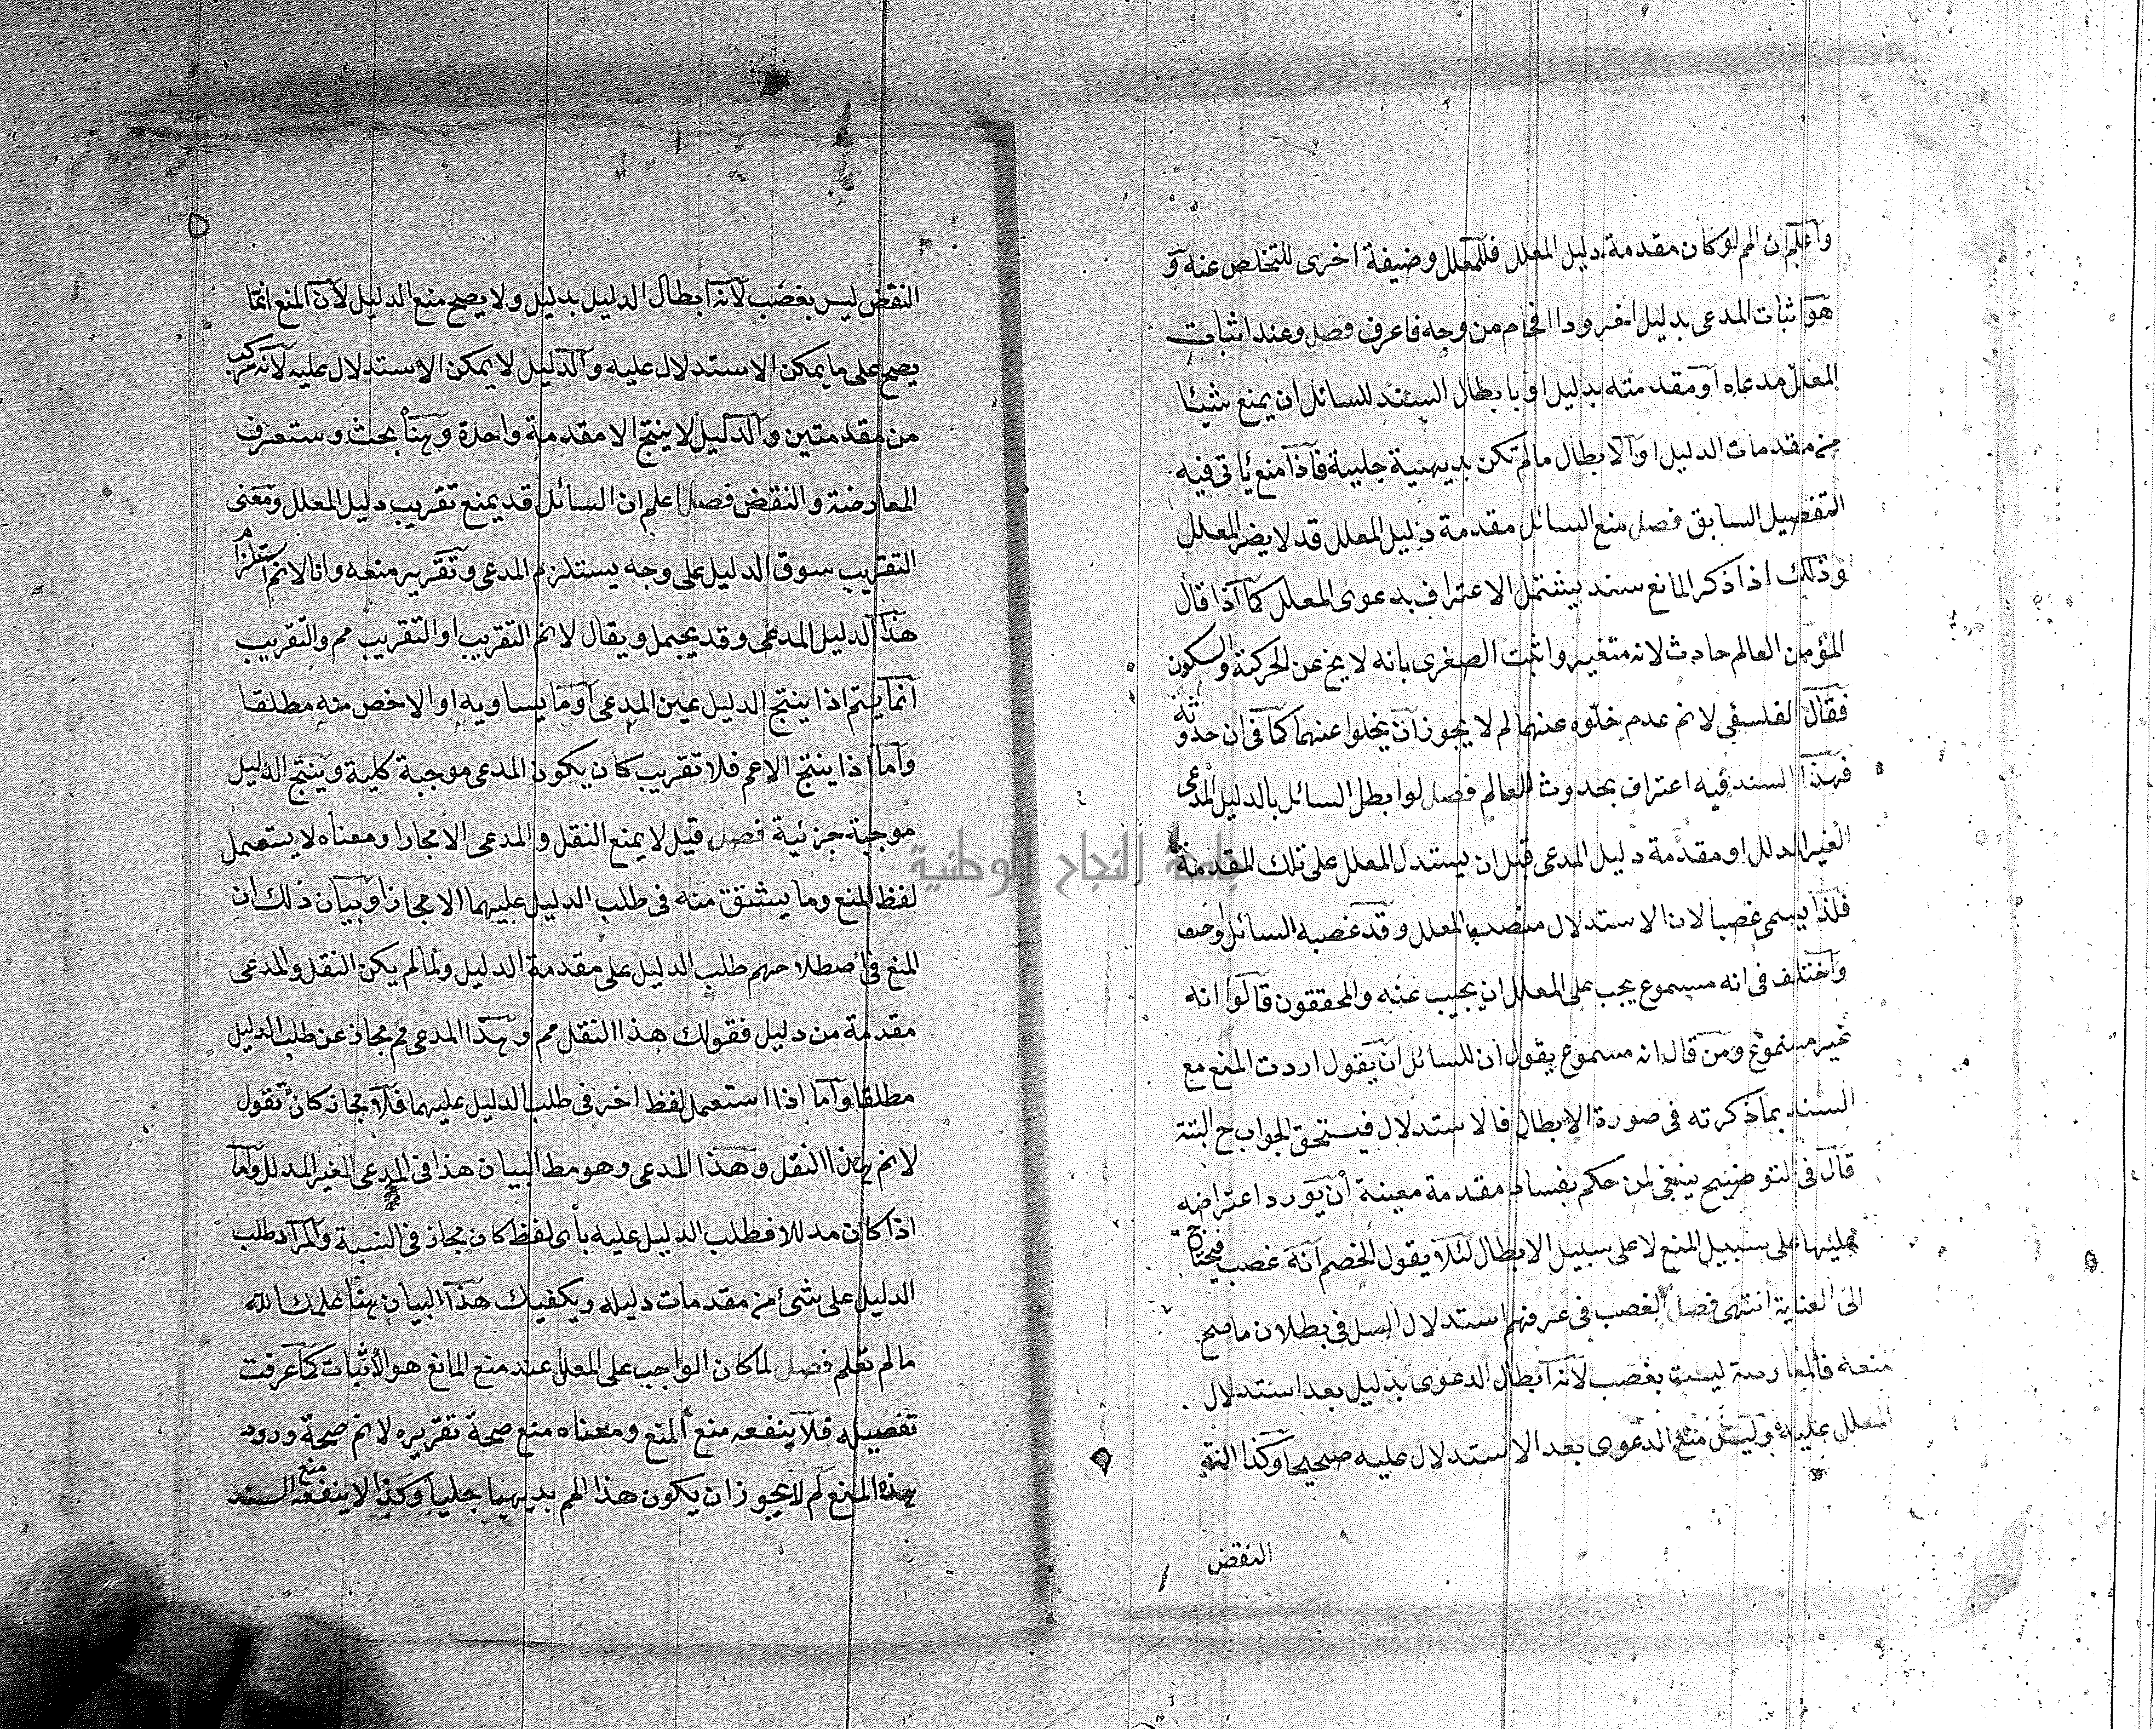 واعلم ان المم لو كان مقدمة دليل المعلل فللمعلل وضيفة اخرى للتخلص عنه و
هو اثبات المدعى بدليل اخر وذا افحام من وجه فاعرف فصل وعند اثبات
المعلل مدعاه او مقدمته بدليل او بابطال السند للسائل ان يمنع شيئا
من مقدمات الدليل او الابطال مالم تكن بديهية جلية فاذا منع يأتى فيه
التفصيل السابق فصل منع السائل مقدمة دليل المعلل قد لا يضر المعلل
وذلك اذا ذكر المانع سند يشتمل الاعتراف بدعوى المعلل كما اذا قال
المؤمن العالم حادث لانه متغير واثبت الصغرى بانه لا يخ عن الحركة والسكون
فقال الفلسفى لانم عدم خلوه عنهما لم لا يجوز ان يخلوا عنهما كما فى ان حدوثه
فهذا السند فيه اعتراف بحدوث العالم فصل لو ابطل السائل بالدليل المدعى
الغير المدلل او مقدمة دليل المدعى قبل ان يستدل المعلل على تلك المقدمة
فلذا يسمى غصبا لان الاستدلال منصب المعلل وقد غصبه السائل
واختلف فى انه مسموع يجب على المعلل ان يجيب عنه والمحققون قالوا انه
غير مسموع ومن قال انه مسموع يقول ان للسائل ان يقول اردت المنع مع
السند بما ذكرته فى صورة الابطال فالاستدلال فيستحق الجواب ح البتة
قال فى التوضيح ينبغى لمن حكم بفساد مقدمة معينة ان يورد اعتراضه
عليها على سبيل المنع لا على سبيل الابطال لئلا يقول الخصم انه غصب فيحتاج
الى العناية انتهى فصل الغصب فى عرفهم استدلال السل فى بطلان ما صح
منعه فالمعارضة ليست بغصب لانه ابطال الدعوى بدليل بعد استدلال
المعلل عليه وليس منع الدعوى بعد الاستدلال عليه صحيحا وكذا النقـ
النقض
النقض ليس بغصب لانه ابطال الدليل بدليل ولا يصح منع الدليل لان المنع انما
يصح على ما يمكن الاستدلال عليه والدليل لا يمكن الاستدلال عليه لانه مركب
من مقدمتين والدليل لا ينتج الا مقدمة واحدة وههنا بحث وستعرف
المعارضة والنقض فصل اعلم ان السائل قد يمنع تقريب دليل المعلل ومعنى
التقريب سوق الدليل على وجه يستلزم المدعى وتقرير منعه وانا لانم استلزام
هذا الدليل المدعى وقد يجمل ويقال لانم التقريب او التقريب مم والتقريب
انما يتم اذا ينتج الدليل عين المدعى او ما يساويه او الاخص منه مطلقا
واما اذا ينتج الاعم فلا تقريب كان يكون المدعى موجبة كلية وينتج الدليل
موجبة جزئية فصل قيل لا يمنع النقل والمدعى الا مجازا ومعناه لا يستعمل
لفظ المنع وما يشتق منه فى طلب الدليل عليهما الا مجازا وبيان ذلك ان
المنع فى اصطلاحهم طلب الدليل على مقدمة الدليل ولما لم يكن النقل والمدعى
مقدمة من دليل فقولك هذا النقل مم وهذا المدعى مم مجاز عن طلب الدليل
مطلقا واما اذا استعمل لفظ اخر فى طلب الدليل عليهما فلا مجاز كان تقول
لانم هذا النقل وهذا المدعى وهو مط البيان هذا فى المدعى الغير المدلل واما
اذا كان مدللا فطلب الدليل عليه بأى لفظ كان مجاز فى النسبة والمراد طلب
الدليل على شئ من مقدمات دليله ويكفيك هذا البيان ههنا علمك الله
مالم تعلم فصل لما كان الواجب على المعلل عند منع المانع هو الاثبات كما عرفت
تفصيله فلا ينفعه منع المنع ومعناه منع صحة تقريره لانم صحة ورود
هذا المنع لم لا يجوز ان يكون هذا المم بديهيا جليا وكذا لا ينفعه منع السند
جامعة النجاح الوطنية